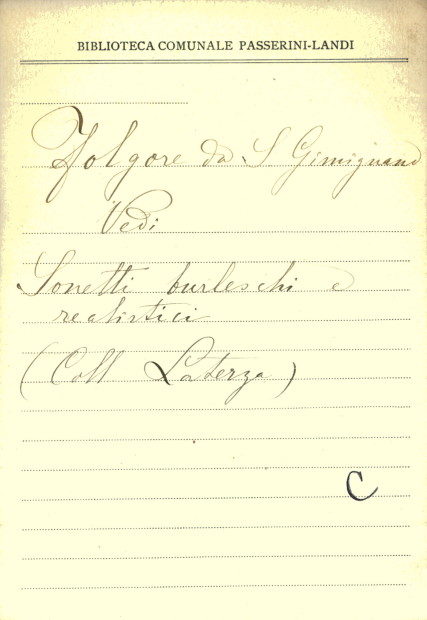 BIBLIOTECA COMUNALE PASSERINI-LANDI
Folgore da S Gimignano
Vedi
Sonetti burleschi e
realistici
(Coll Laterza)
C